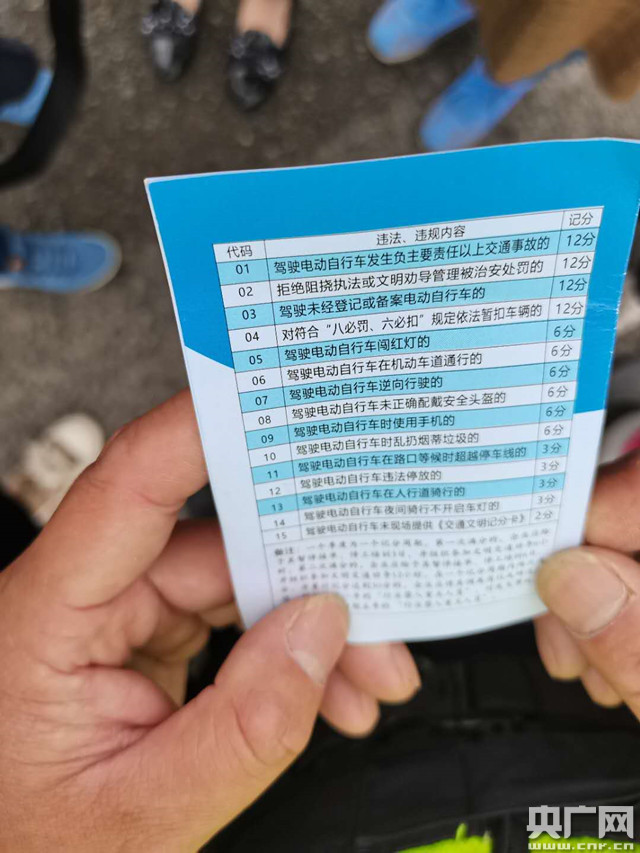 代码 违法、违规内容 记分
01 驾驶电动自行车发生负主要责任以上交通事故的 12分
02 拒绝阻挠执法或文明劝导管理被治安处罚的 12分
03 驾驶未经登记或备案电动自行车的 12分
04 对符合“八必罚、六必扣”规定依法暂扣车辆的 12分
05 驾驶电动自行车闯红灯的 6分
06 驾驶电动自行车在机动车道通行的 6分
07 驾驶电动自行车逆向行驶的 6分
08 驾驶电动自行车未正确配戴安全头盔的 6分
09 驾驶电动自行车时使用手机的 6分
10 驾驶电动自行车时乱扔烟蒂垃圾的 6分
11 驾驶电动自行车在路口等候时超越停车线的 3分
12 驾驶电动自行车违法停放的 3分
13 驾驶电动自行车在人行道骑行的 3分
14 驾驶电动自行车夜间骑行不开启车灯的 3分
15 驾驶电动自行车未现场提供《交通文明记分卡》 2分
备注：一个季度为一个记分周期，第一次满分的，
央广网
www.cnr.cn